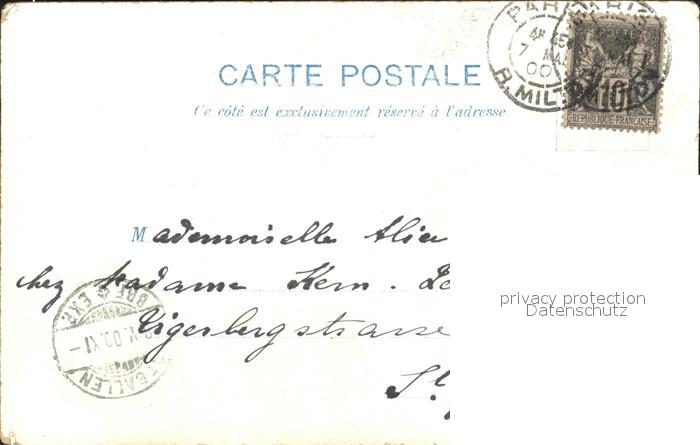 CARTE POSTALE
Ce côté est exclusivement réservé à l'adresse.
PARIS
7 MAI
00
R. MILT
POSTES
10
REPUBLIQUE FRANÇAISE
Mademoiselle Alice
chez Madame Kern.
Tigerbergstrasse
St.
GALLEN
BRF. & EXP.
V. 00. XI –
privacy protection
Datenschutz